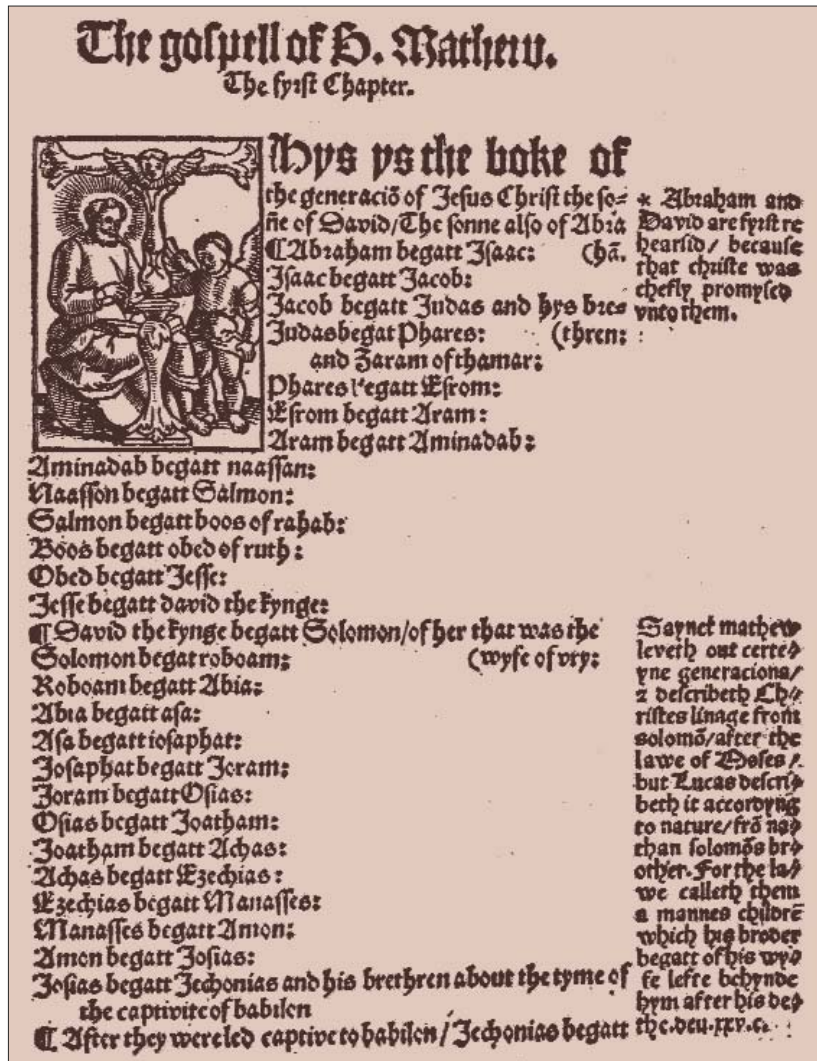 The gospell of S. Mathew.
The fyrst Chapter.
Thys ys the boke of
the generaciō of Jesus Christ the so⸗
ñe of David/The sonne also of Abra
¶Abraham begatt Isaac: (hā.
Isaac begatt Jacob:
Jacob begatt Judas and hys bre⸗
Judas begat Phares: (thren:
and Zaram of thamar:
Phares begatt Esrom:
Esrom begatt Aram:
Aram begatt Aminadab:
Aminadab begatt naassan:
Naasson begatt Salmon:
Salmon begatt boos of rahab:
Boos begatt obed of ruth:
Obed begatt Jesse:
Jesse begatt david the kynge:
¶ David the kynge begatt Solomon/of her that was the
Solomon begat roboam: (wyfe of vry:
Roboam begatt Abia:
Abia begatt asa:
Asa begatt iosaphat:
Josaphat begatt Joram:
Joram begatt Osias:
Osias begatt Joatham:
Joatham begatt Achas:
Achas begatt Ezechias:
Ezechias begatt Manasses:
Manasses begatt Amon:
Amon begatt Josias:
Josias begatt Jechonias and his brethren about the tyme of
the captivite of babilon
¶ After they were led captive to babilon/Jechonias begatt
* Abraham and
David are fyrst re
hearsid/ because
that christe was
chefly promysed
vnto them.
Saynct mathew
leveth out certe⸗
yne generacions/
⁊ describeth Ch⸗
ristes linage from
solomō/after the
lawe of Moses/
but Lucas descri⸗
beth it accordyng
to nature/frō na⸗
than solomōs br⸗
other. For the la⸗
we calleth them
a mannes childrē
which his broder
begatt of his wy⸗
fe lefte behynde
hym after his de⸗
the.deu.xxv.c.